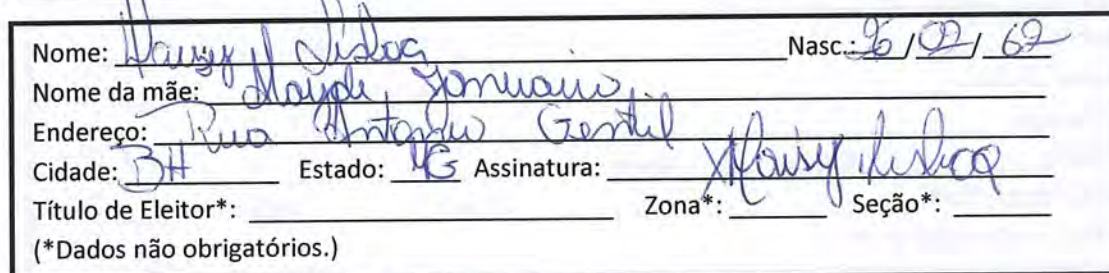 Nome: Lisboa Nasc.: 26 / 02 / 62
Nome da mãe: Januario
Endereço: Rua Antonio Gentil
Cidade: BH Estado: MG Assinatura: Lisboa
Título de Eleitor*: Zona*: Seção*:
(*Dados não obrigatórios.)